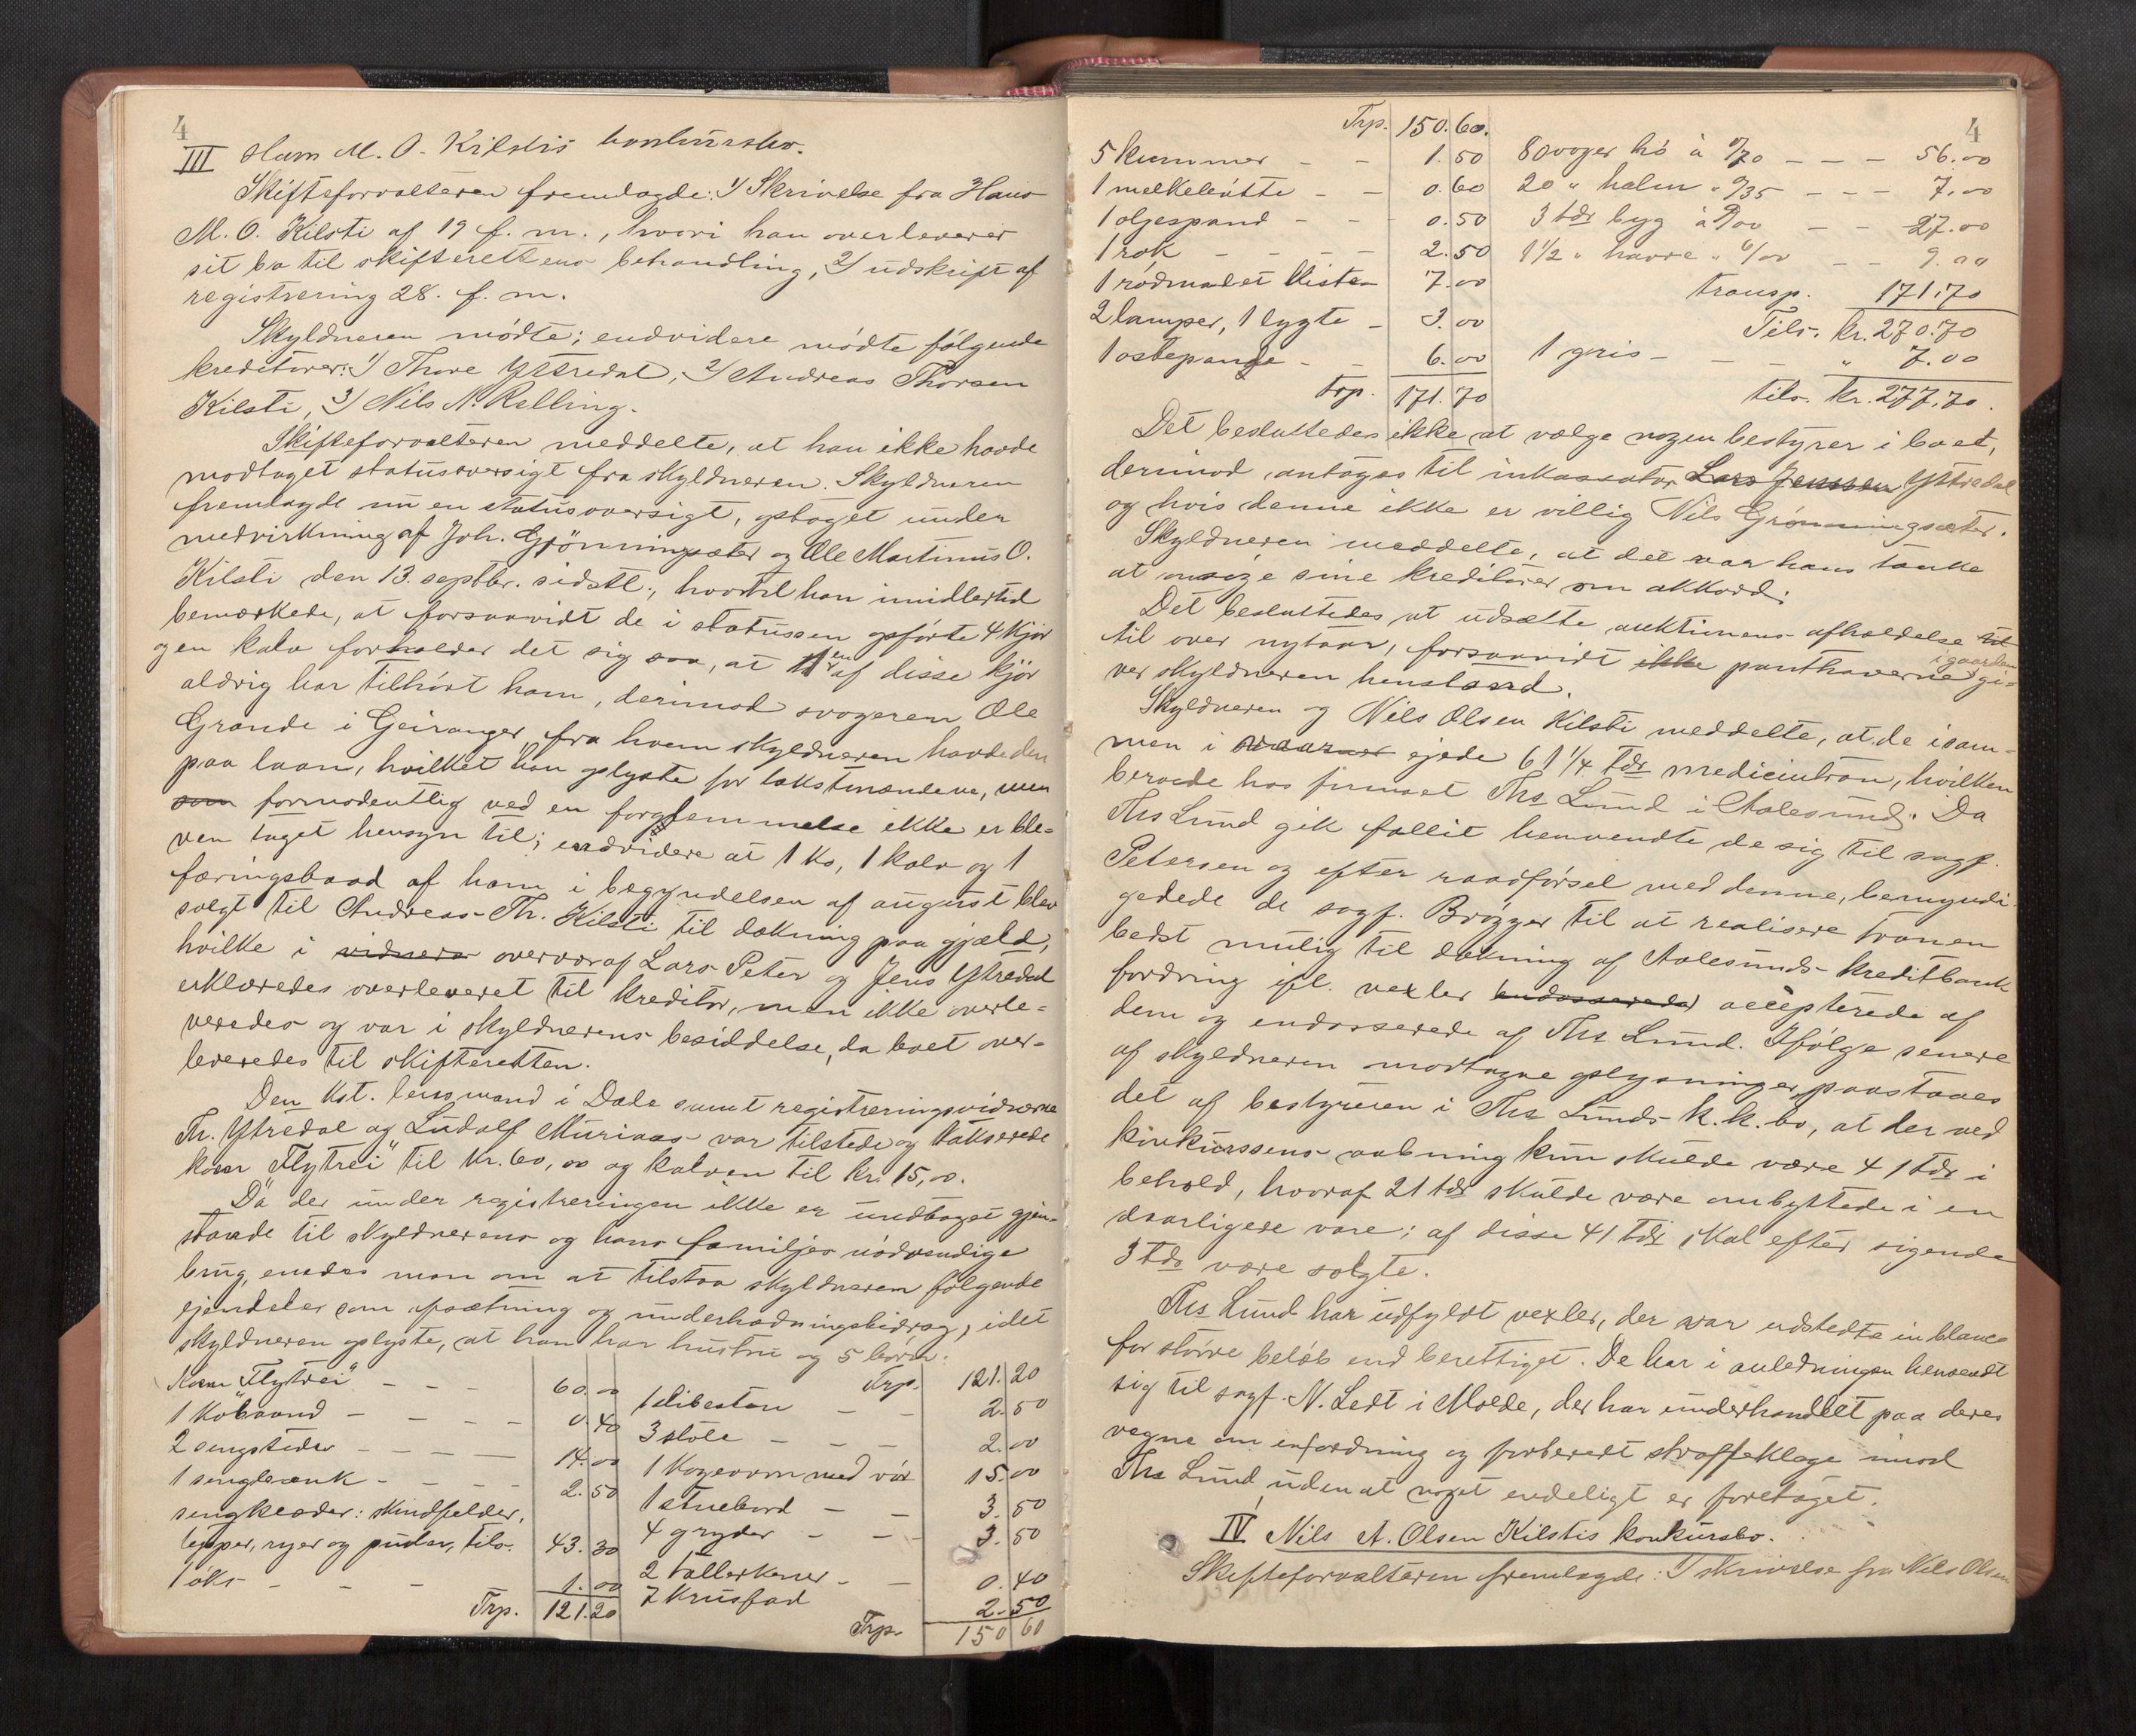 4
III Hans M. O. Kilstis konkursbo.
Skifteforvalteren fremlagde: 1/ Skrivelse fra Hans
M. O. Kilsti af 19 f. m., hvori han overleverer
sit bo til skifterettens behandling, 2/ udskrift af
registrering 28. f. m.
Skyldneren mødte; endvidere mødte følgende
kreditorer: 1/ Thore Ytredal, 2/ Andreas Thorsen
Kilsti, 3/ Nils N. Relling.
Skifteforvalteren meddelte, at han ikke havde
modtaget statusoversigt fra skyldneren. Skyldneren
fremlagde nu en statusoversigt, optaget under
medvirkning af Joh. Grönningsæter og Ole Martinus O.
Kilsti den 13. septbr. sidstl., hvortil han imidlertid
bemærkede, at forsaavidt de i statussen opførte 4 kjør
og en kalv forholder det sig saa, at en af disse kjør
aldrig har tilhørt ham, derimod svogeren Ole
Grande i Geiranger, fra hvem skyldneren havde den
paa laan, hvilket han oplyste for takstmændene, men
som formodentlig ved en forglemmelse ikke er ble=
ven taget hensyn til; endvidere at 1 ko, 1 kalv og 1
færingsbaad af ham i begyndelsen af august blev
solgt til Andreas Th. Kilsti til dækning paa gjæld,
hvilke i vidners overvær af Lars Peter og Jens Ytredal
erklæredes overleveret til kreditor, men ikke overle=
veredes og var i skyldnerens besiddelse, da boet over=
leveredes til skifteretten.
Den kst. lensmand i Dale samt registreringsvidnerne
Th. Ytredal og Ludolf Muriaas var tilstede og takserede
koen "Flytrei" til kr. 60,00 og kalven til kr. 15,00.
Da der under registreringen ikke er undtaget gjen=
stande til skyldnerens og hans familjes nødvendige
brug, enedes man om at tilstaa skyldneren følgende
ejendeler som opsætning og underholdningsbidrag, idet
skyldneren oplyste, at han har hustru og 5 børn:
Koen "Flytrei" - - - 60.00
1 kobaand - - - - 0.40
2 sengsteder - - - - 14.00
1 sengbænk - - - - 2.50
sengklæder: skindfelder,
tepper, ryer og puder, tils. 43.30
1 øks - - - 1.00
Trp. 121.20
Trp. 121.20
1 - - 2.50
3 stole - - - 2.00
1 kogeovn med rör 15.00
1 stuebord - - 3.50
4 gryder - - - 3.50
2 tallerkener - - 0.40
7 krusfad 2.50
Trp. 150 60
4
Trp. 150.60.
5 kummer - - 1.50
1 melkebøtte - - 0.60
1 oljespand - - - 0.50
1 rok - - - - 2.50
1 rødmalet kiste - 7.00
2 lamper, 1 lygte - 3.00
1 ostepande - - 6.00
Trp. 171.70
80 voger hø à 0/70 - - - 56.00
20 " halm " 0/35 - - - 7.00
3 tdr byg à 9/00 - - 27.00
1 1/2 " havre " 6/00 - - 9.00
transp. 171.70
Tils. kr. 270.70
1 gris - - - " 7.00
tils. kr. 277.70.
Det besluttedes ikke at vælge nogen bestyrer i boet,
derimod antages til inkassator Lars Jenssen Ytredal
og hvis denne ikke er villig Nils Grønningsæter.
Skyldneren meddelte, at det var hans tanke
at ansøge sine kreditorer om akkord.
Det besluttedes at udsætte auktionens afholdelse til
til over nytaar, forsaavidt ikke panthaverne i gaarden gi=
ver skyldneren henstand.
Skyldneren og Nils Olsen Kilsti meddelte, at de isam=
men i ejede 61 1/4 tdr medicintran, hvilken
beroede hos firmaet Ths Lund i Aalesund. Da
Ths Lund gik fallit henvendte de sig til sagf.
Petersen og efter raadførsel med denne, bemyndi=
gedede de sagf. Brøgger til at realisere tranen
bedst mulig til dækning af Aalesunds kreditbank
fordring ifl. vexler endosserede accepterede af
dem og endosserede af Ths Lund. Ifølge senere
af skyldneren modtagne oplysninger, paastaaes
det af bestyreren i Ths Lunds k.k.bo, at der ved
konkurssens aabning kun skulde være 41 tdr i
behold, hvoraf 21 tdr skulde være ombyttede i en
daarligere vare; af disse 41 tdr skal efter sigende
3 tdr være solgte.
Ths Lund har udfyldt vexler, der var udstedte in blanco
for større beløb end berettiget. De har i anledningen henvendt
sig til sagf. N. Ledt i Molde, der har underhandlet paa deres
vegne om fordring og forberedt straffeklage imod
Ths Lund, uden at noget endeligt er foretaget.
IV Nils A. Olsen Kilstis konkursbo.
Skifteforvalteren fremlagde: 1/ skrivelse fra Nils Olsen